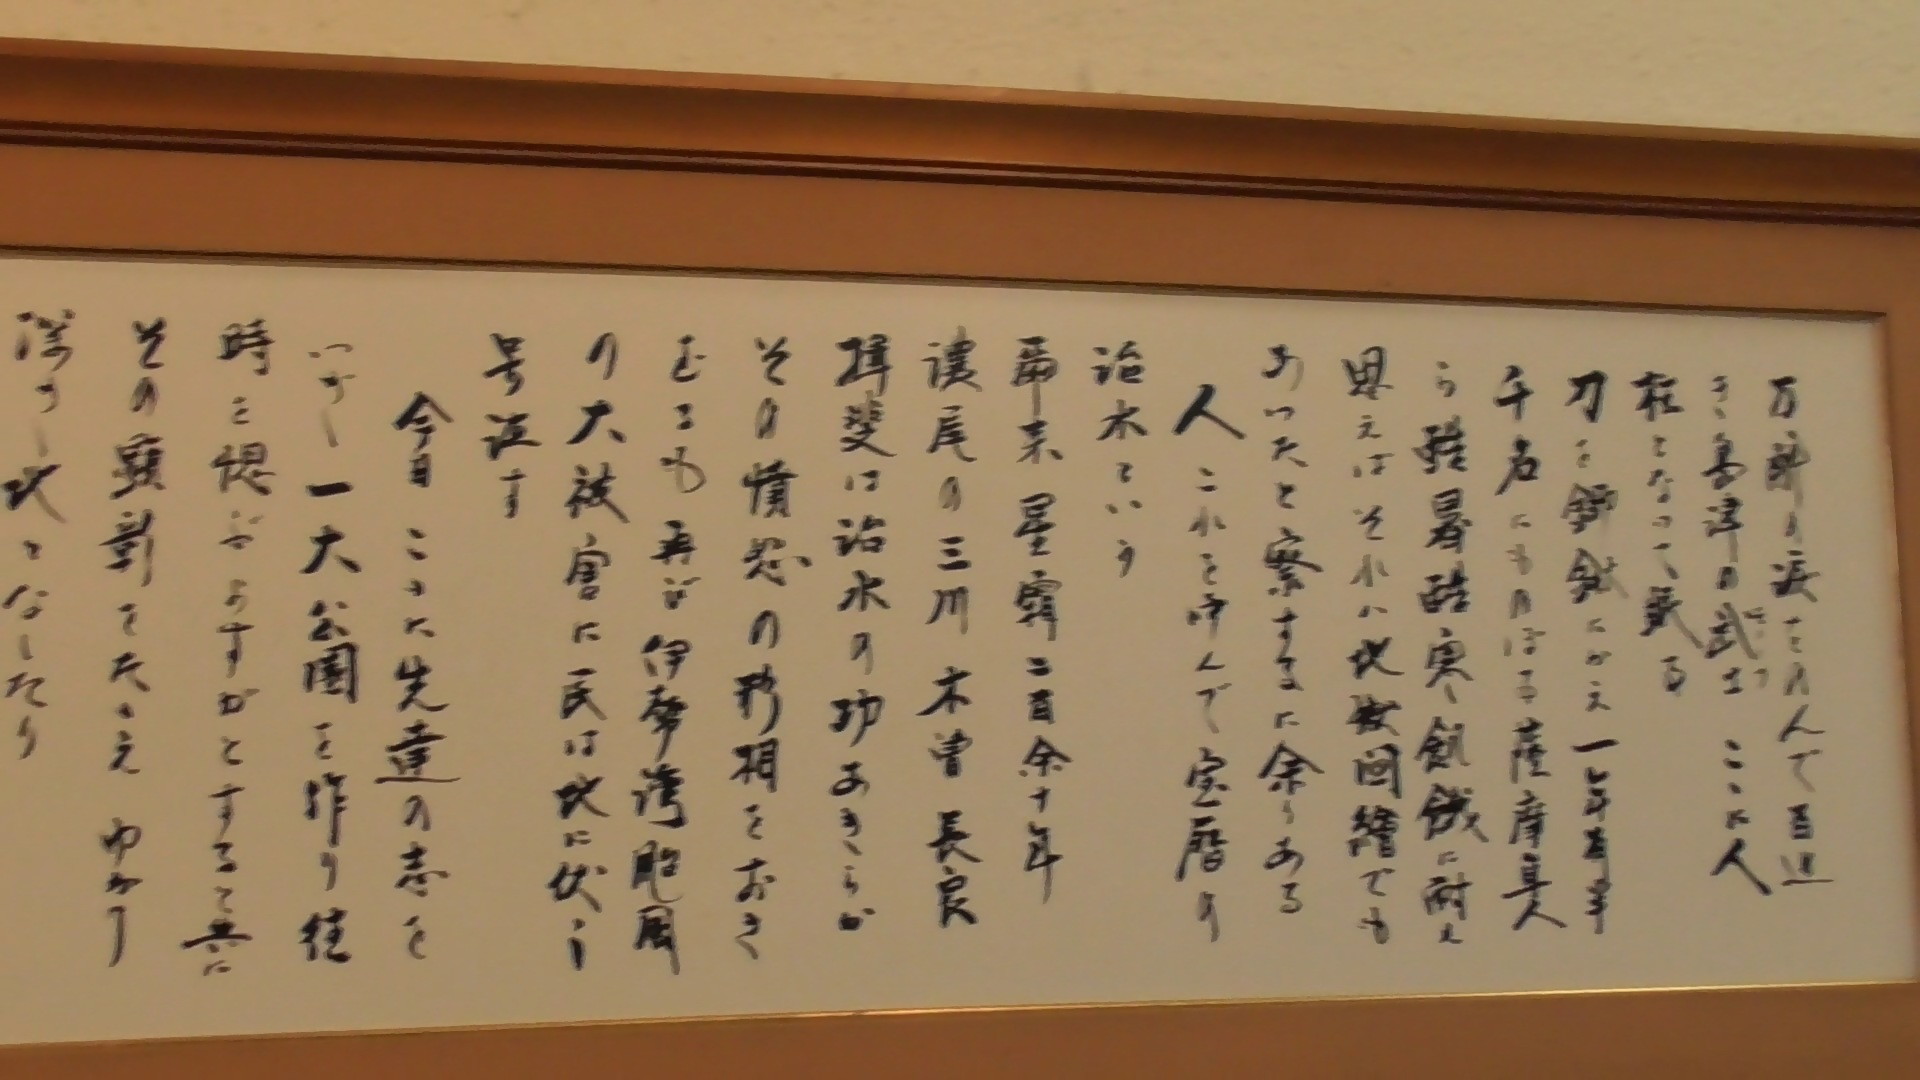 万斛の涙をのんで百里
き島津の武士 ここに人
柱となって氣る
刀を鍬にかえ 一年有半
千名にものぼる薩摩隼人
ら 酷暑酷寒 飢餓に耐え
思えばそれは地獄図繪でも
あったと察するに余りある
人 これを呼んで宝暦の
治水という
爾来 星霜二百余十年
濃尾の三川 木曽 長良
揖斐は治水の功あきらか
その憤怒の形相をおき
むるも 再び伊勢湾颱風
の大被害に民は地に伏し
号泣す
今日 これら先達の志を
いかし 一大公園を作り 往
時を偲ぶよすがとすると共に
その顕彰をたたえ ゆかり
深き地となしたり